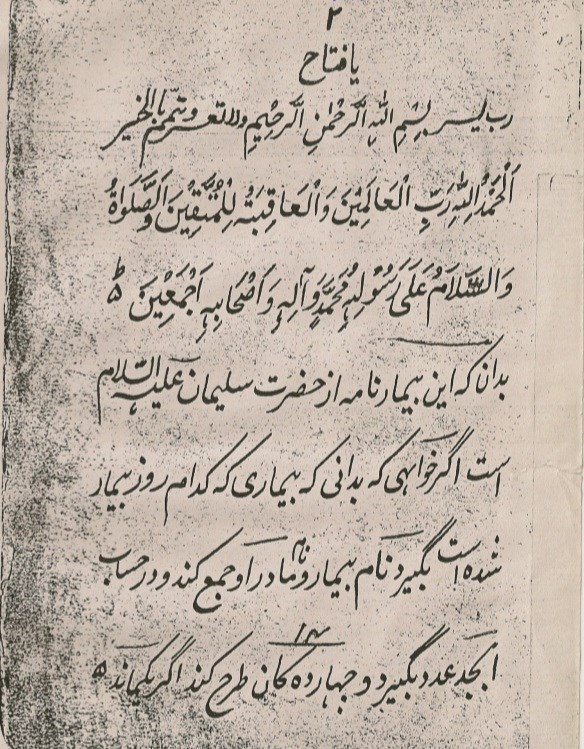 ۲
یا فتاح
رب یسر بِسْمِ اللهِ الرَّحْمٰنِ الرَّحِيْمِ ولا تعسر وتمّم بالخیر
اَلْحَمْدُ لِلّٰهِ رَبِّ الْعَالَمِيْنَ وَالْعَاقِبَةُ لِلْمُتَّقِيْنَ وَالصَّلَوٰةُ
وَالسَّلَامُ عَلَى رَسُوْلِهٖ مُحَمَّدٍ وَآلِهٖ وَاَصْحَابِهٖ اَجْمَعِيْنَ
بدانا که این بیمارنامه از حضرت سلیمان علیه السّلام
است اگر خواهی که بدانی که بیماری که کدام روز بیمار
شده است بگیرد نام بیمار و نام مادر او جمع کند و در حساب
ابجد عدد بگیرد و چهارده کان طرح کند اگر یکماند